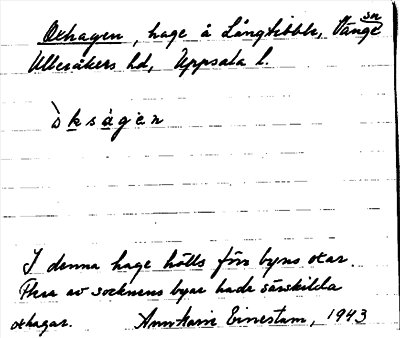 Oxhagen, hage å Långtibble, Vänge sn
Ulleråkers hd, Uppsala l.
òksàgen
I denna hage hölls förr byns oxar.
Flera av socknens byar hade särskilda
oxhagar. Ann-Marie Einestam, 1943